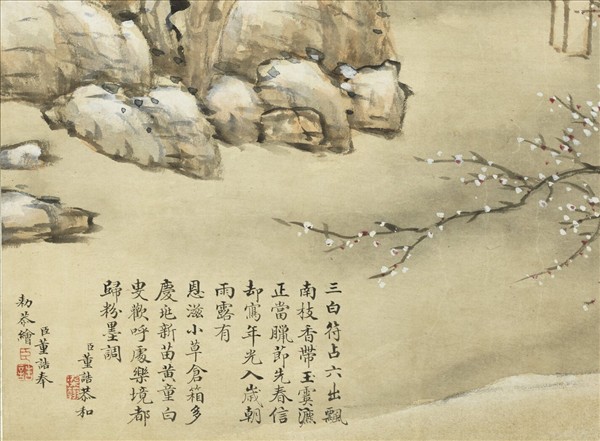 三白符占六出飄
南枝香帶玉霙瀌
正當臘節先春信
却寫年光入歲朝
雨露有
恩滋小草倉箱多
慶兆新苗黄童白
叟歡呼處樂境都
歸粉墨調
臣董誥恭和
臣董誥奉
勅恭繪
臣